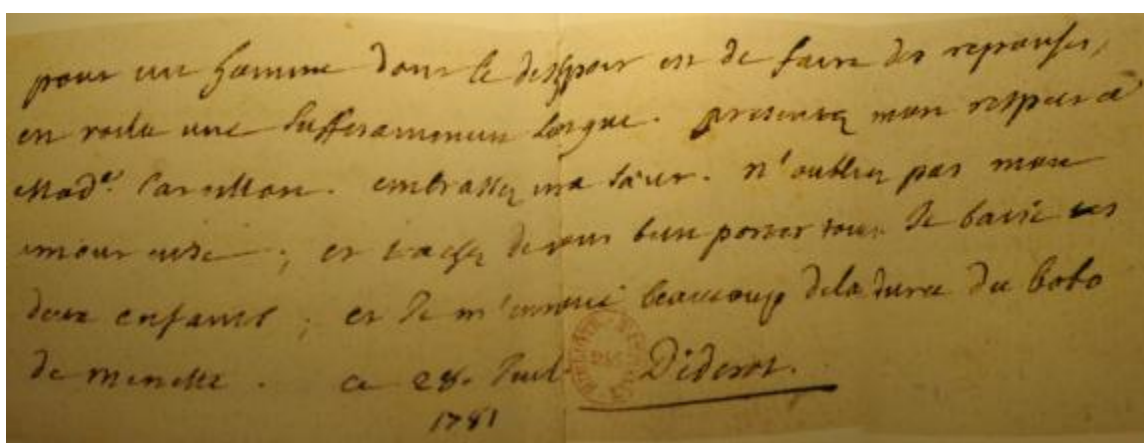 pour un homme dont le desespoir est de faire des reponses,
en voila une suffisamment longue. presentez mon respect a
Mad.e Carillon. embrassez ma sœur. n'oubliez pas mon
amoureuse; et tachez de vous bien porter tous. Je baise ces
deux enfants; et Je m'ennuie beaucoup de la duree du bobo
de minette. ce 28. Juil. Diderot.
1781